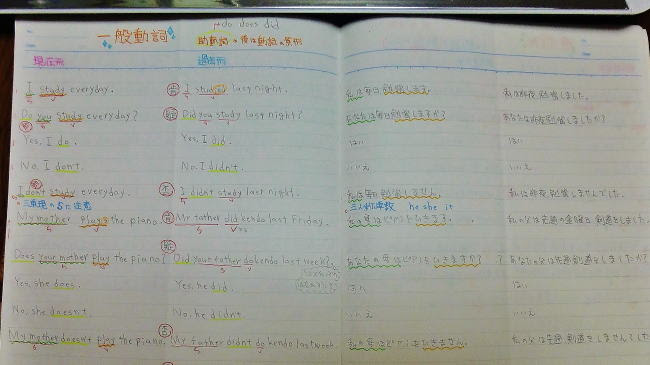 do does did
一般動詞
助動詞の後は動詞の原形
現在形 過去形
I study everyday. I studied last night. 私は毎日勉強します。 私は昨夜勉強しました。
Do you study everyday? Did you study last night? あなたは毎日勉強しますか? あなたは昨夜勉強しましたか?
Yes, I do. Yes, I did. はい はい
No, I don't. No, I didn't. いいえ いいえ
I don't study everyday. I didn't study last night. 私は毎日勉強しません。 私は昨夜勉強しませんでした。
三単現のSに注意 三人称単数 he she it
My mother plays the piano. My father did kendo last Friday. 私の母はピアノをひきます。 私の父は先週の金曜日剣道をしました。
Does your mother play the piano? Did your father do kendo last week? あなたの母はピアノをひきますか? あなたの父は先週剣道をしましたか?
Yes, she does. Yes, he did. はい はい
No, she doesn't. No, he didn't. いいえ いいえ
My mother doesn't play the piano. My father didn't do kendo last week. 私の母はピアノをひきません。 私の父は先週剣道をしませんでした